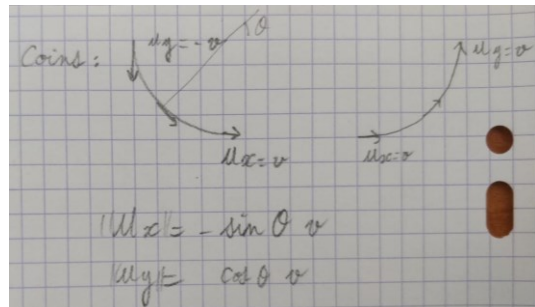 Coins :
uy = - v
θ
ux = v
uy = v
ux = v
||ux|| = - sin θ v
||uy|| = cos θ v